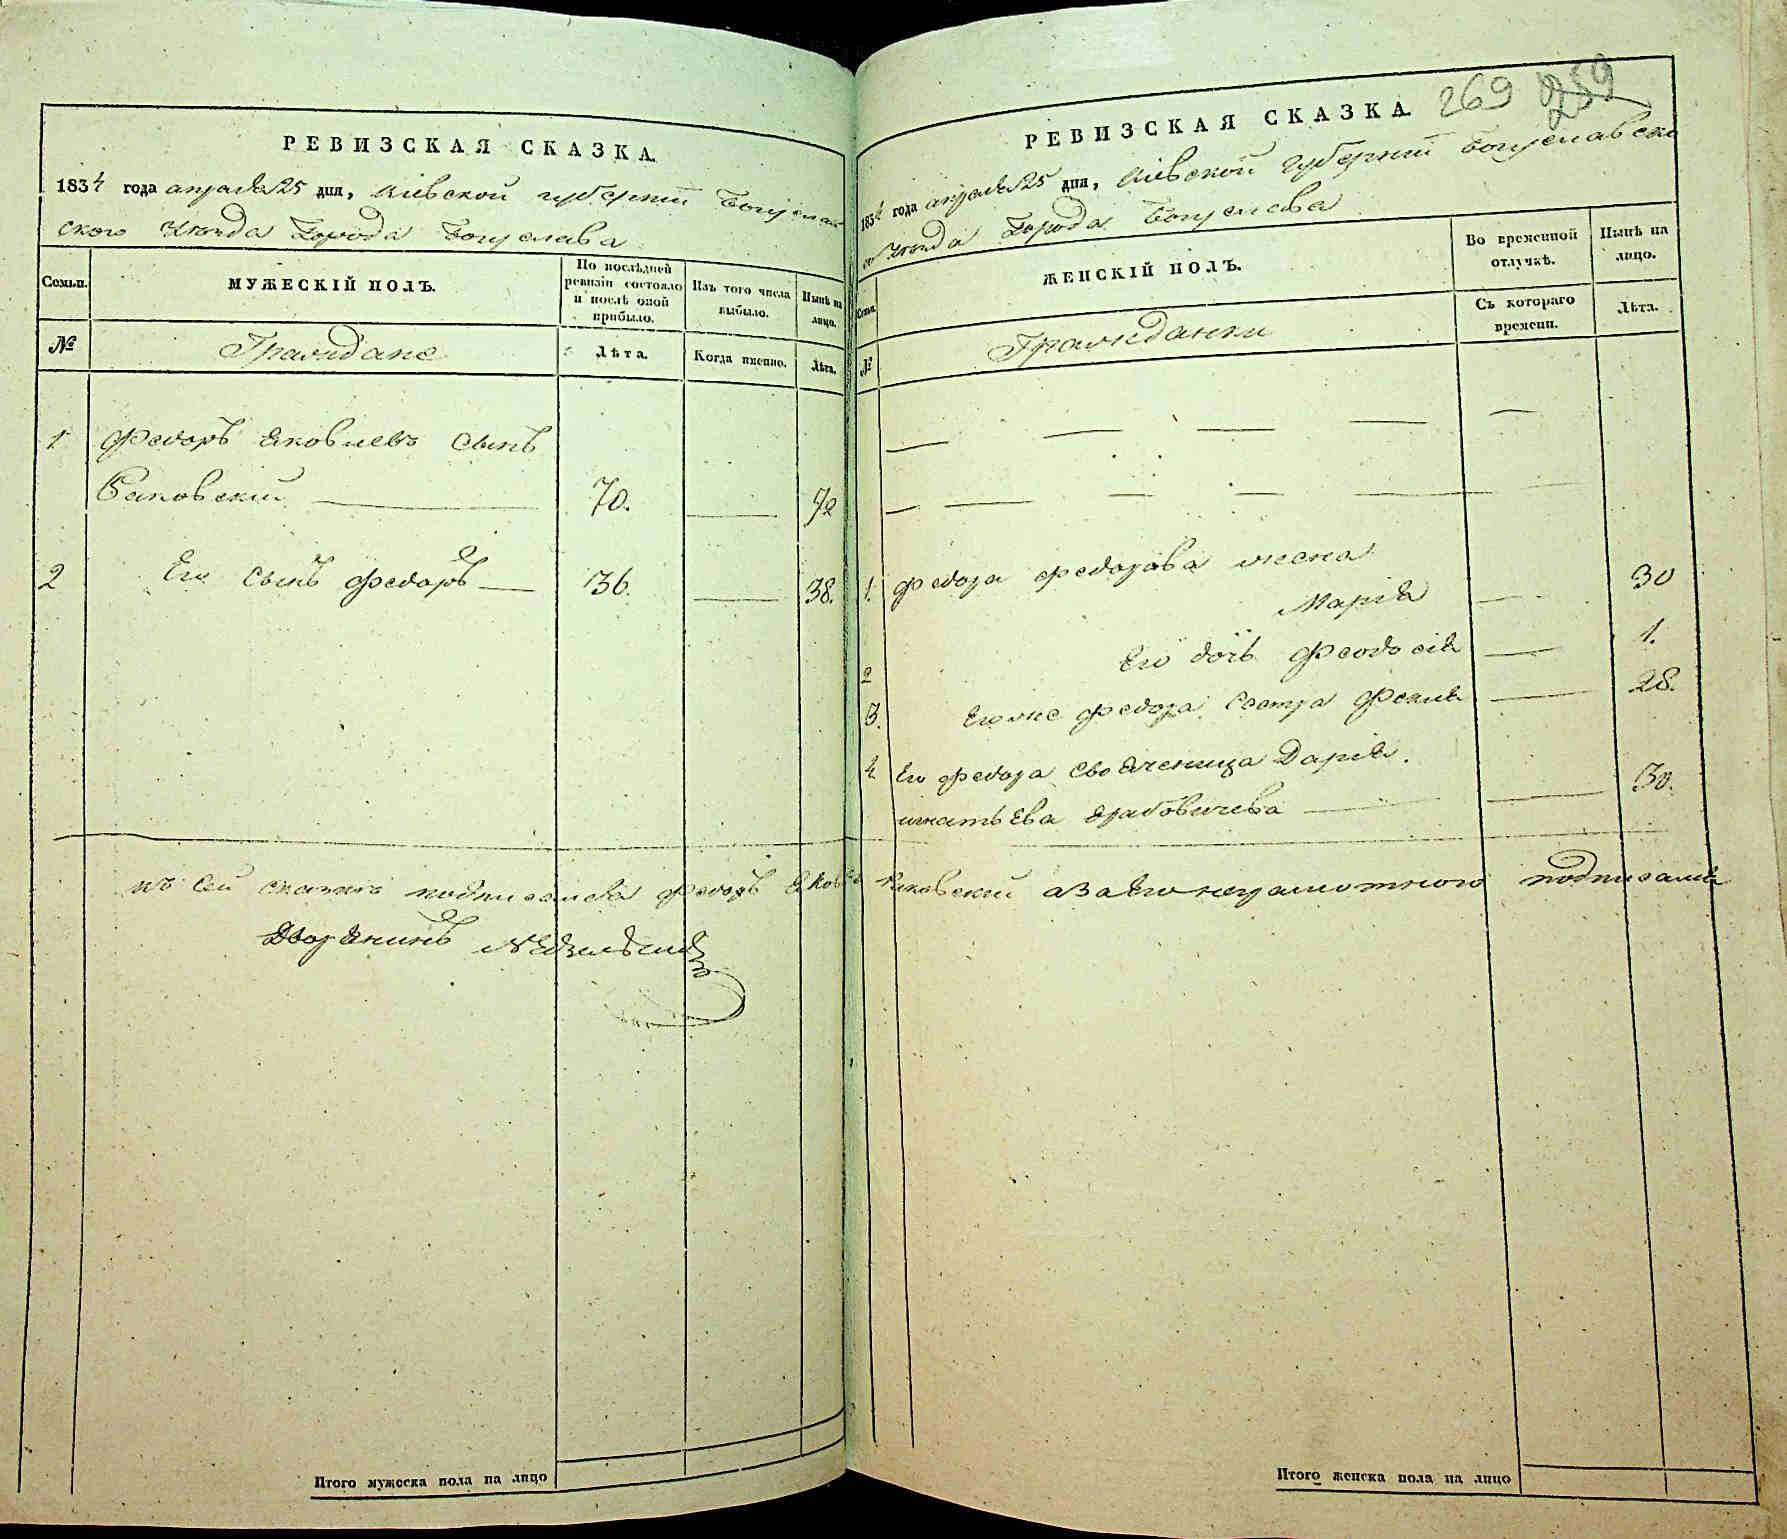 РЕВИЗСКАЯ СКАЗКА.
1834 года апреля 25 дня, Кіевской губерніи Богуслав
ского уезда Города Богуслава
Семьи.
МУЖЕСКІЙ ПОЛЪ.
По послѣдней ревизіи состояло и послѣ оной прибыло.
Изъ того числа выбыло.
Нынѣ на лицо.
№
Граждане
Лѣта.
Когда именно.
Лѣта.
1 Федоръ Яковлевъ сынъ
70. 72
2 Его сынъ Федоръ 36. 38.
къ сей сказке подписался Федоръ Яковлевъ
Дворянинъ
Итого мужеска пола на лицо
269 259
РЕВИЗСКАЯ СКАЗКА.
1834 года апреля 25 дня, Кіевской Губерніи Богуславско
го уезда Города Богуслава
Семьи.
ЖЕНСКІЙ ПОЛЪ.
Во временной отлучкѣ.
Нынѣ на лицо.
№
Гражданки
Съ котораго времени.
Лѣта.
1. Федора Федорова жена
Марія 30
2 Его дочь Феодосія 1.
3. Его же Федора сестра Фекла 28.
4. Его Федора своячница Дарія
игнатьева 30.
а за его неграмотного подписался
Итого женска пола на лицо